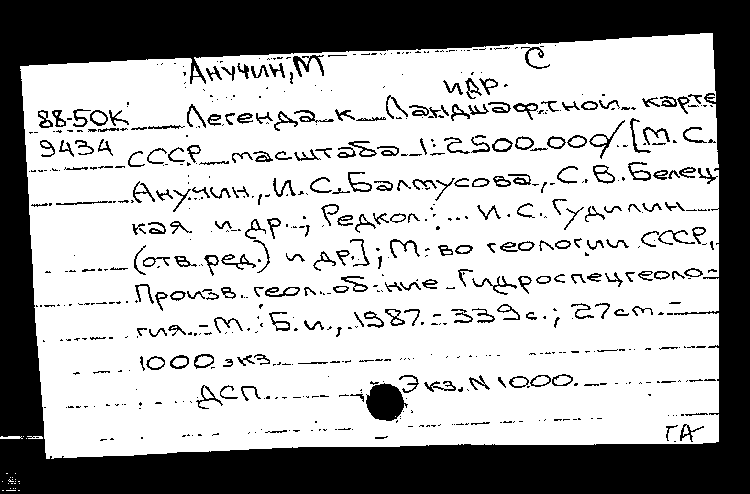 Анучин, М С
и др.
88-50К Легенда к Ландшафтной карте
9434 СССР масштаба 1:2500 000/ [М.С.
Анучин, И.С.Балтусова, С.В.Белец-
кая и др.; Редкол.: ... И.С.Гудилин
(отв.ред.) и др.]; М-во геологии СССР,
Произв. геол. об-ние Гидроспецгеоло-
гия.-М.: Б.и., 1987.-339с.; 27см.-
1000 экз.
ДСП Экз. N 1000.
ГА